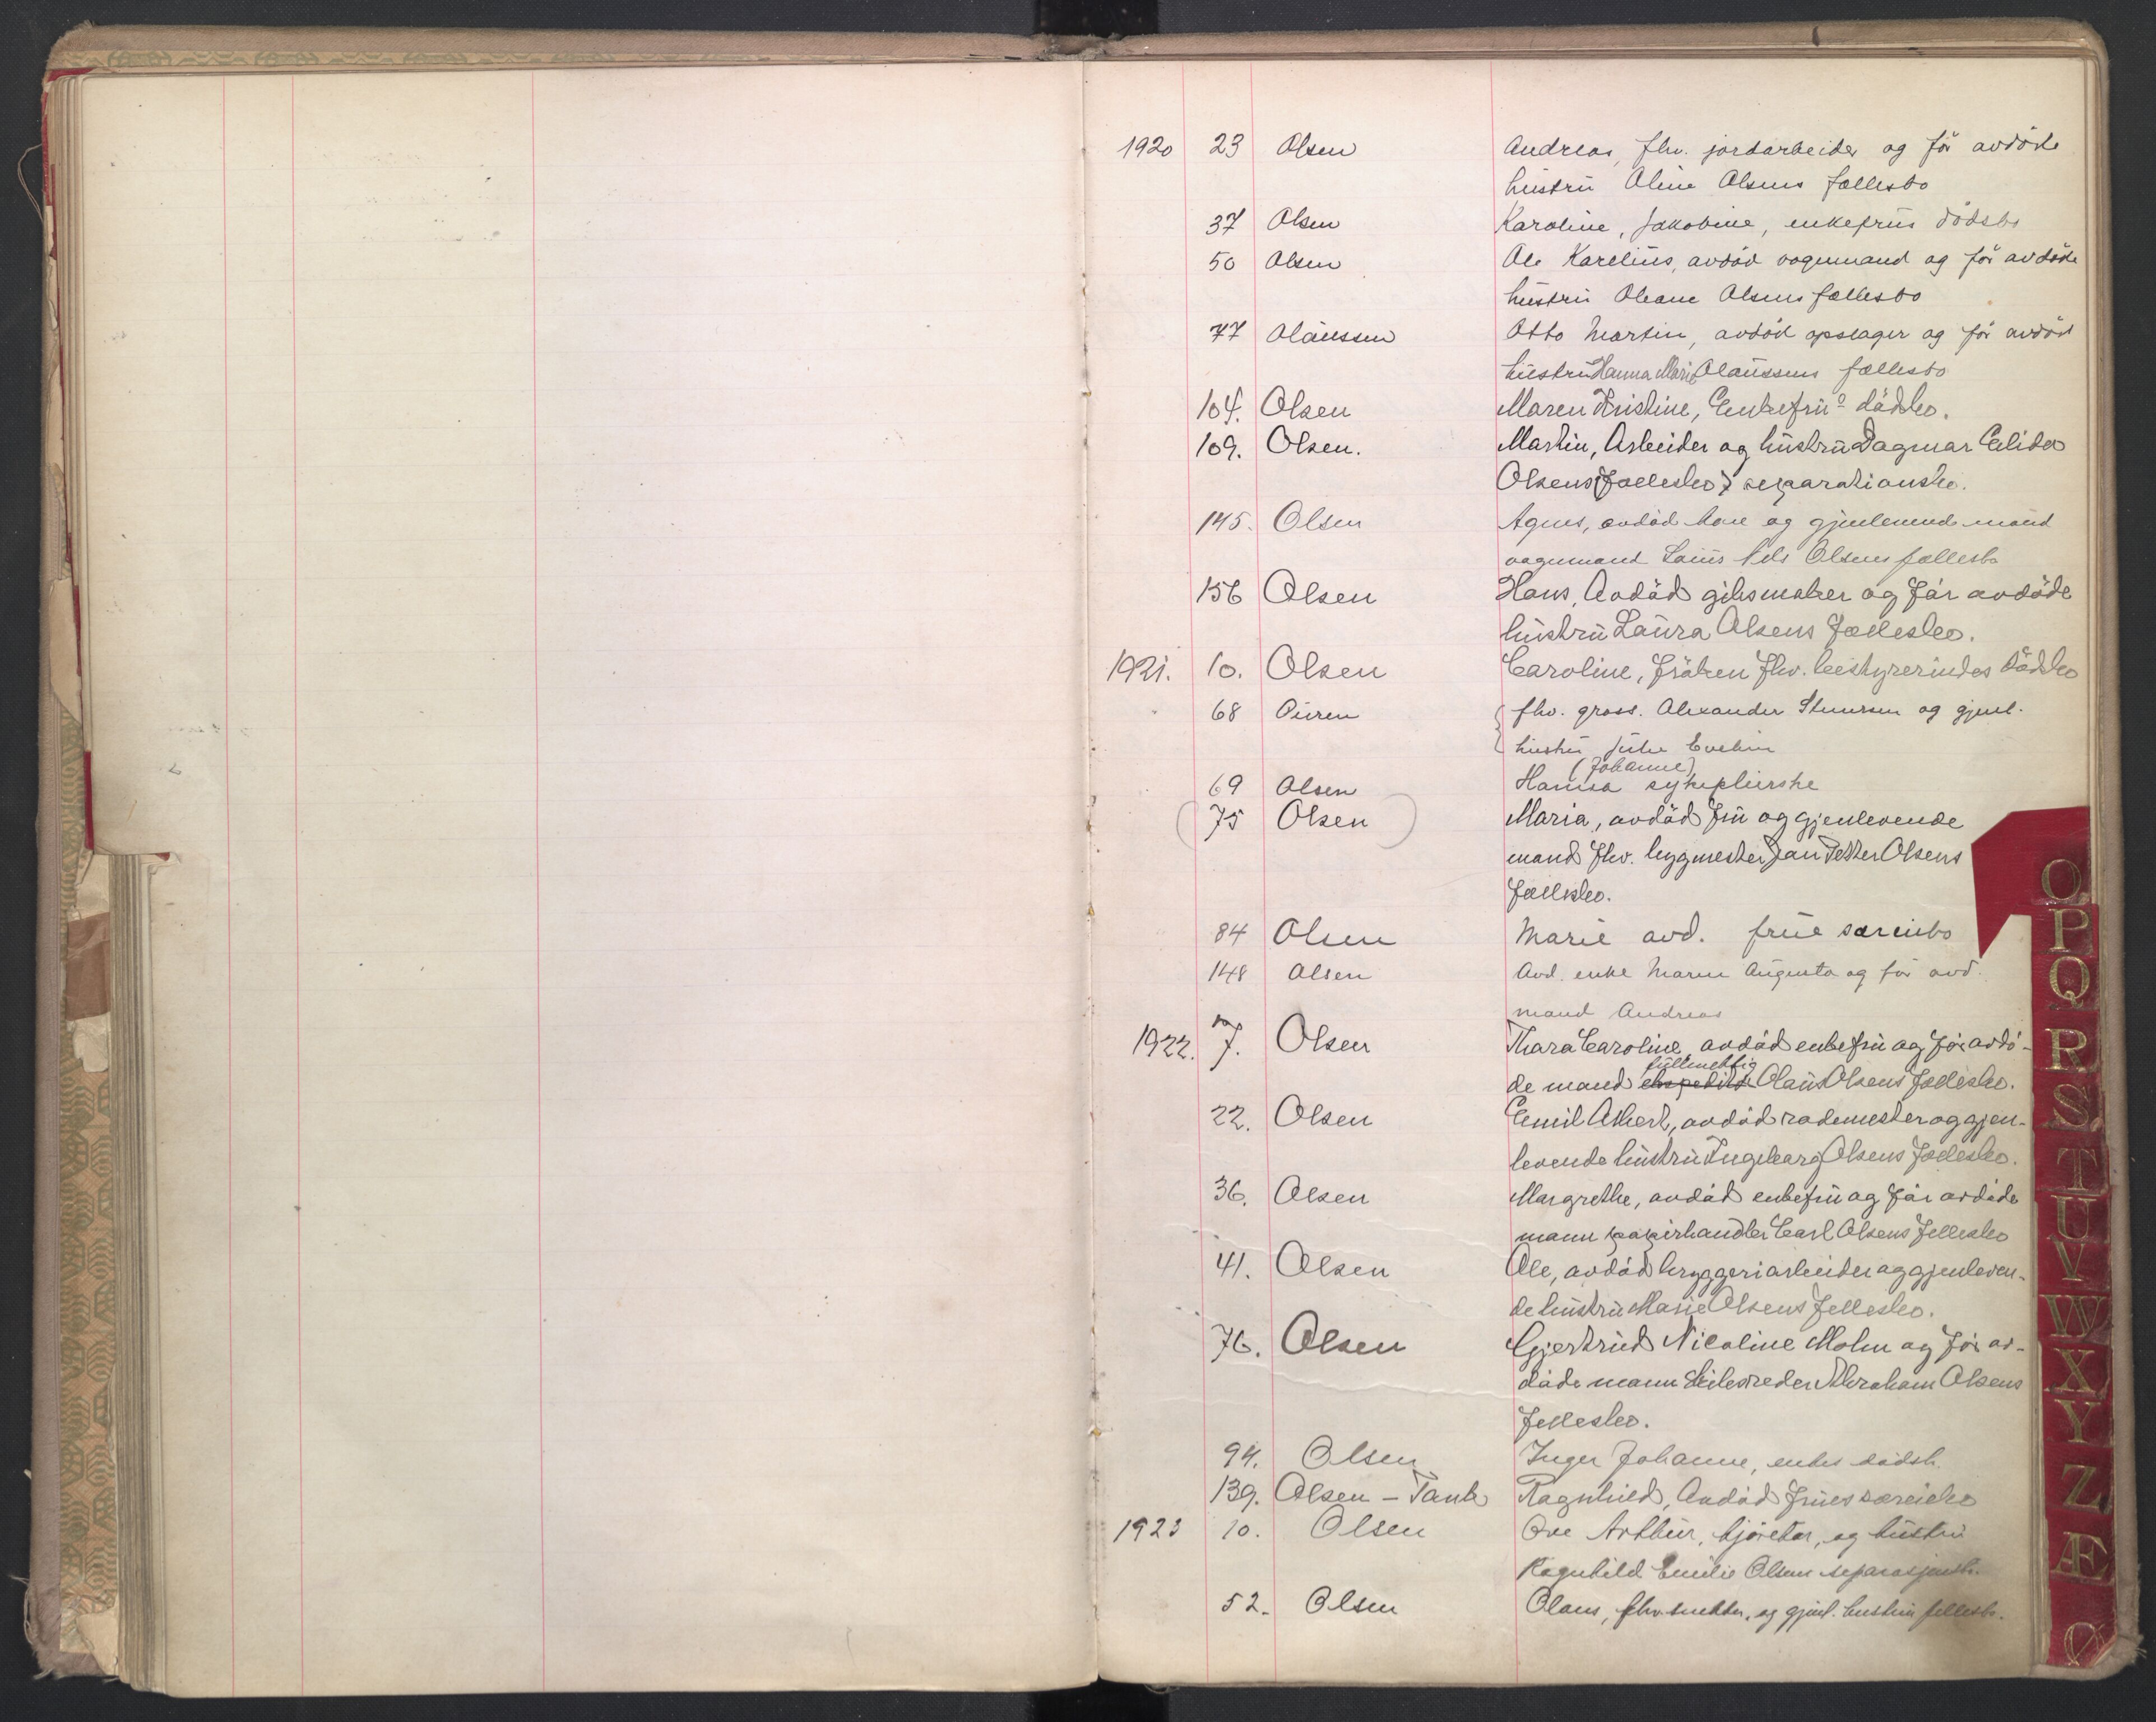 1920 23 Olsen Andreas, fhv. jordarbeider og før avdøde
hustru Oline Olsens fællesbo
37 Olsen Karoline, Jakobine, enkefrus dødsbo
50 Olsen Ole Karelius, avdød vognmand og før avdøde
hustru Oleane Olsens fællesbo
77 Olaussen Otto Martin, avdød opslager og før avdød
hustru Hanna Marie Olaussens fællesbo
104. Olsen Maren Kristine, Enkefrus dødsbo.
109. Olsen. Martin, Arbeider og hustru Dagmar Elida
Olsens (Fællesbo) separationsbo.
145. Olsen Agnes, avdød kone og gjenlevende mand
vognmand Laurs Nils Olsens fællesbo
156 Olsen Hans, Avdød gibsmaker og før avdøde
hustru Laura Olsens Fællesbo.
1921. 10. Olsen Caroline, Frøken fhv. bestyrerindes dødsbo
68 fhv. gross. Alexander og gjenl.
hustru Julie Evelin
(Johanne)
69 Olsen Hanna sykepleierske
(75 Olsen) Maria, avdød fru og gjenlevende
mand fhv. bygmester Jan Petter Olsens
Fællesbo.
84 Olsen Marie avd. frue særeiebo
148 Olsen Avd. enke Maren Augusta og før avd.
mand Andreas
1922. 7. Olsen Thara Caroline, avdød enkefru og før avdø-
fuldmektig
de mand ekspeditør Olaus Olsens Fællesbo.
22. Olsen Emil Albert, avdød rodemester og gjen-
levende hustru Ingeborg Olsens Fællesbo.
36. Olsen Margrethe, avdød enkefru og før avdøde
mann papirhandler Carl Olsens Fellesbo
41. Olsen Ole, avdød bryggeriarbeider og gjenleven-
de hustru Marie Olsens Fellesbo.
76. Olsen Gjertrud Nicoline Mohn og før av-
døde mann Skibsreder Abraham Olsens
Fellesbo.
94. Olsen Inger Johanne, enkes dødsb.
139. Olsen - Tank Ragnhild, Avdød frues særeiebo
1923 10. Olsen Ove Arthur, kjøretør, og hustru
Ragnhild Emilie Olsens separasjonsb.
52. Olsen Olaus, fhv. snekker, og gjenl. hustrus fellesbo.
O
P
Q
R
S
T
U
V
W
X
Y
Z
Æ
Ø